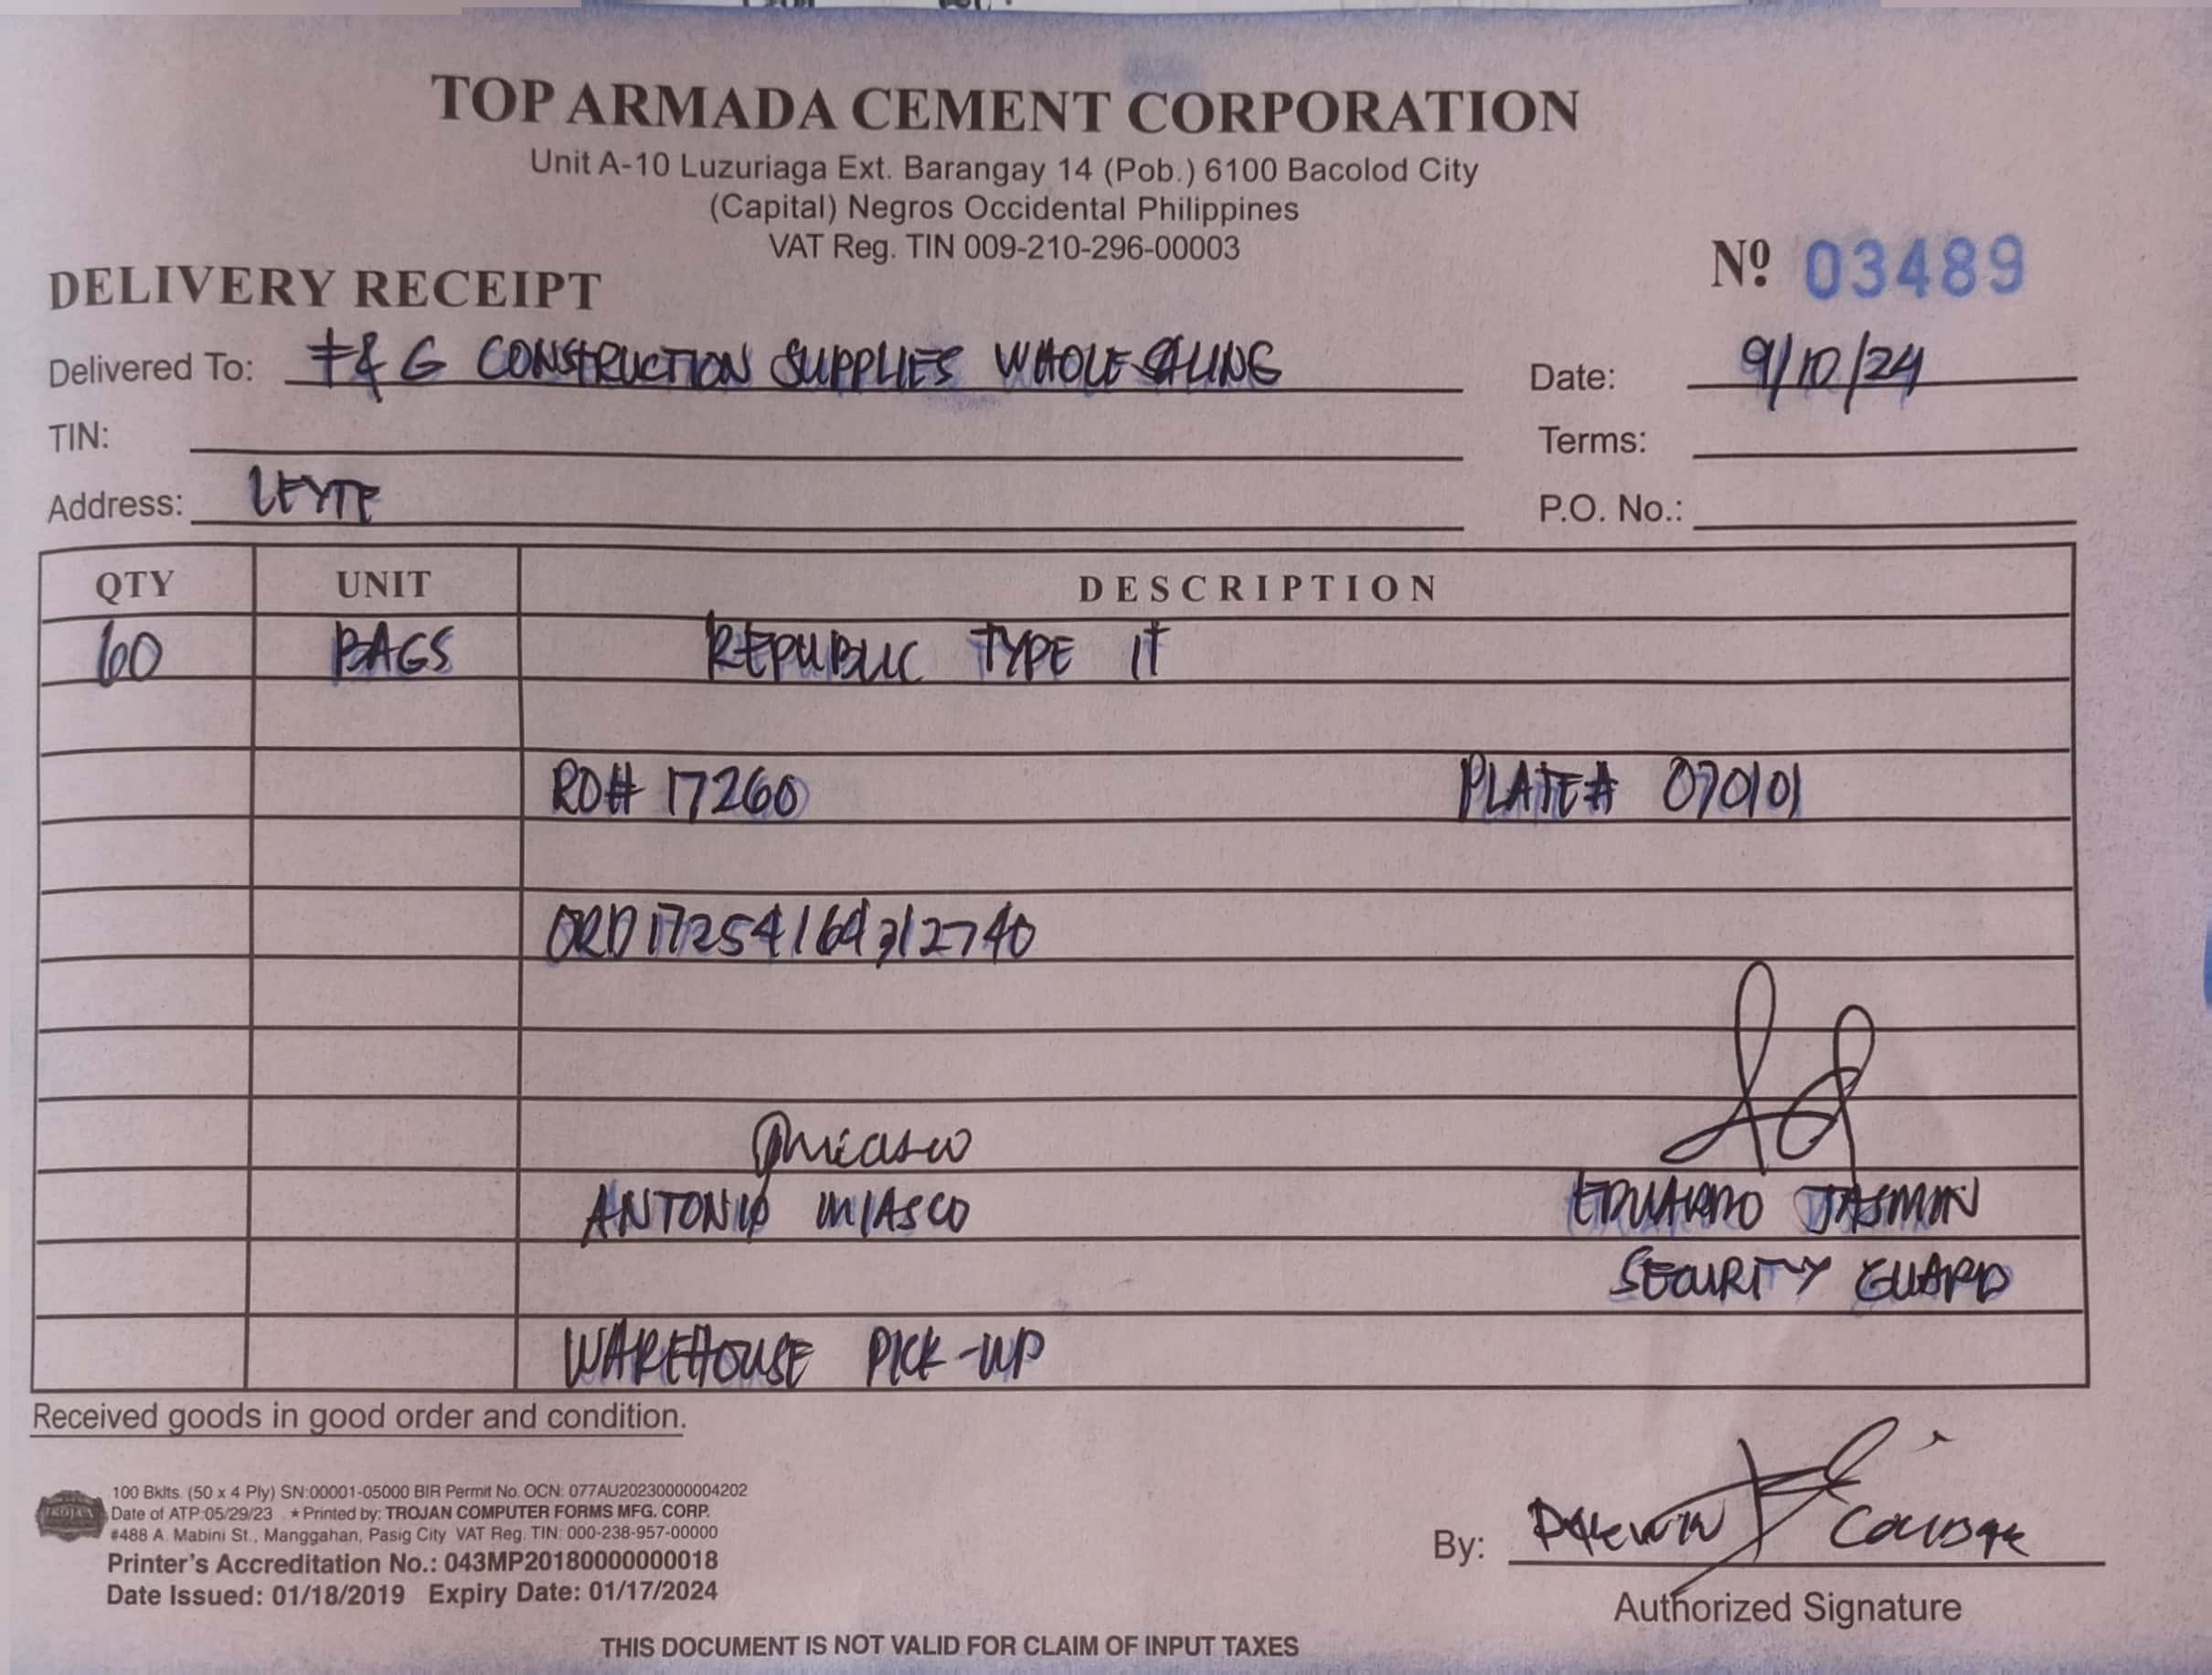 TOP ARMADA CEMENT CORPORATION
Unit A-10 Luzuriaga Ext. Barangay 14 (Pob.) 6100 Bacolod City
(Capital) Negros Occidental Philippines
VAT Reg. TIN 009-210-296-00003
Nº 03489
DELIVERY RECEIPT
Delivered To: F & G CONSTRUCTION SUPPLIES WHOLESALING
Date: 9/10/24
TIN:
Terms:
Address: LEYTE
P.O. No.:
QTY UNIT DESCRIPTION
60 BAGS REPUBLIC TYPE 1T
RO# 17260 PLATE# 070101
ORD17254164312740
ANTONIO MIASCO EDUARDO JASMIN
SECURITY GUARD
WAREHOUSE PICK-UP
Received goods in good order and condition.
TROJAN
100 Bklts. (50 x 4 Ply) SN:00001-05000 BIR Permit No. OCN: 077AU20230000004202
Date of ATP:05/29/23 ★ Printed by: TROJAN COMPUTER FORMS MFG. CORP.
#488 A. Mabini St., Manggahan, Pasig City VAT Reg. TIN: 000-238-957-00000
Printer's Accreditation No.: 043MP20180000000018
Date Issued: 01/18/2019 Expiry Date: 01/17/2024
By:
Authorized Signature
THIS DOCUMENT IS NOT VALID FOR CLAIM OF INPUT TAXES